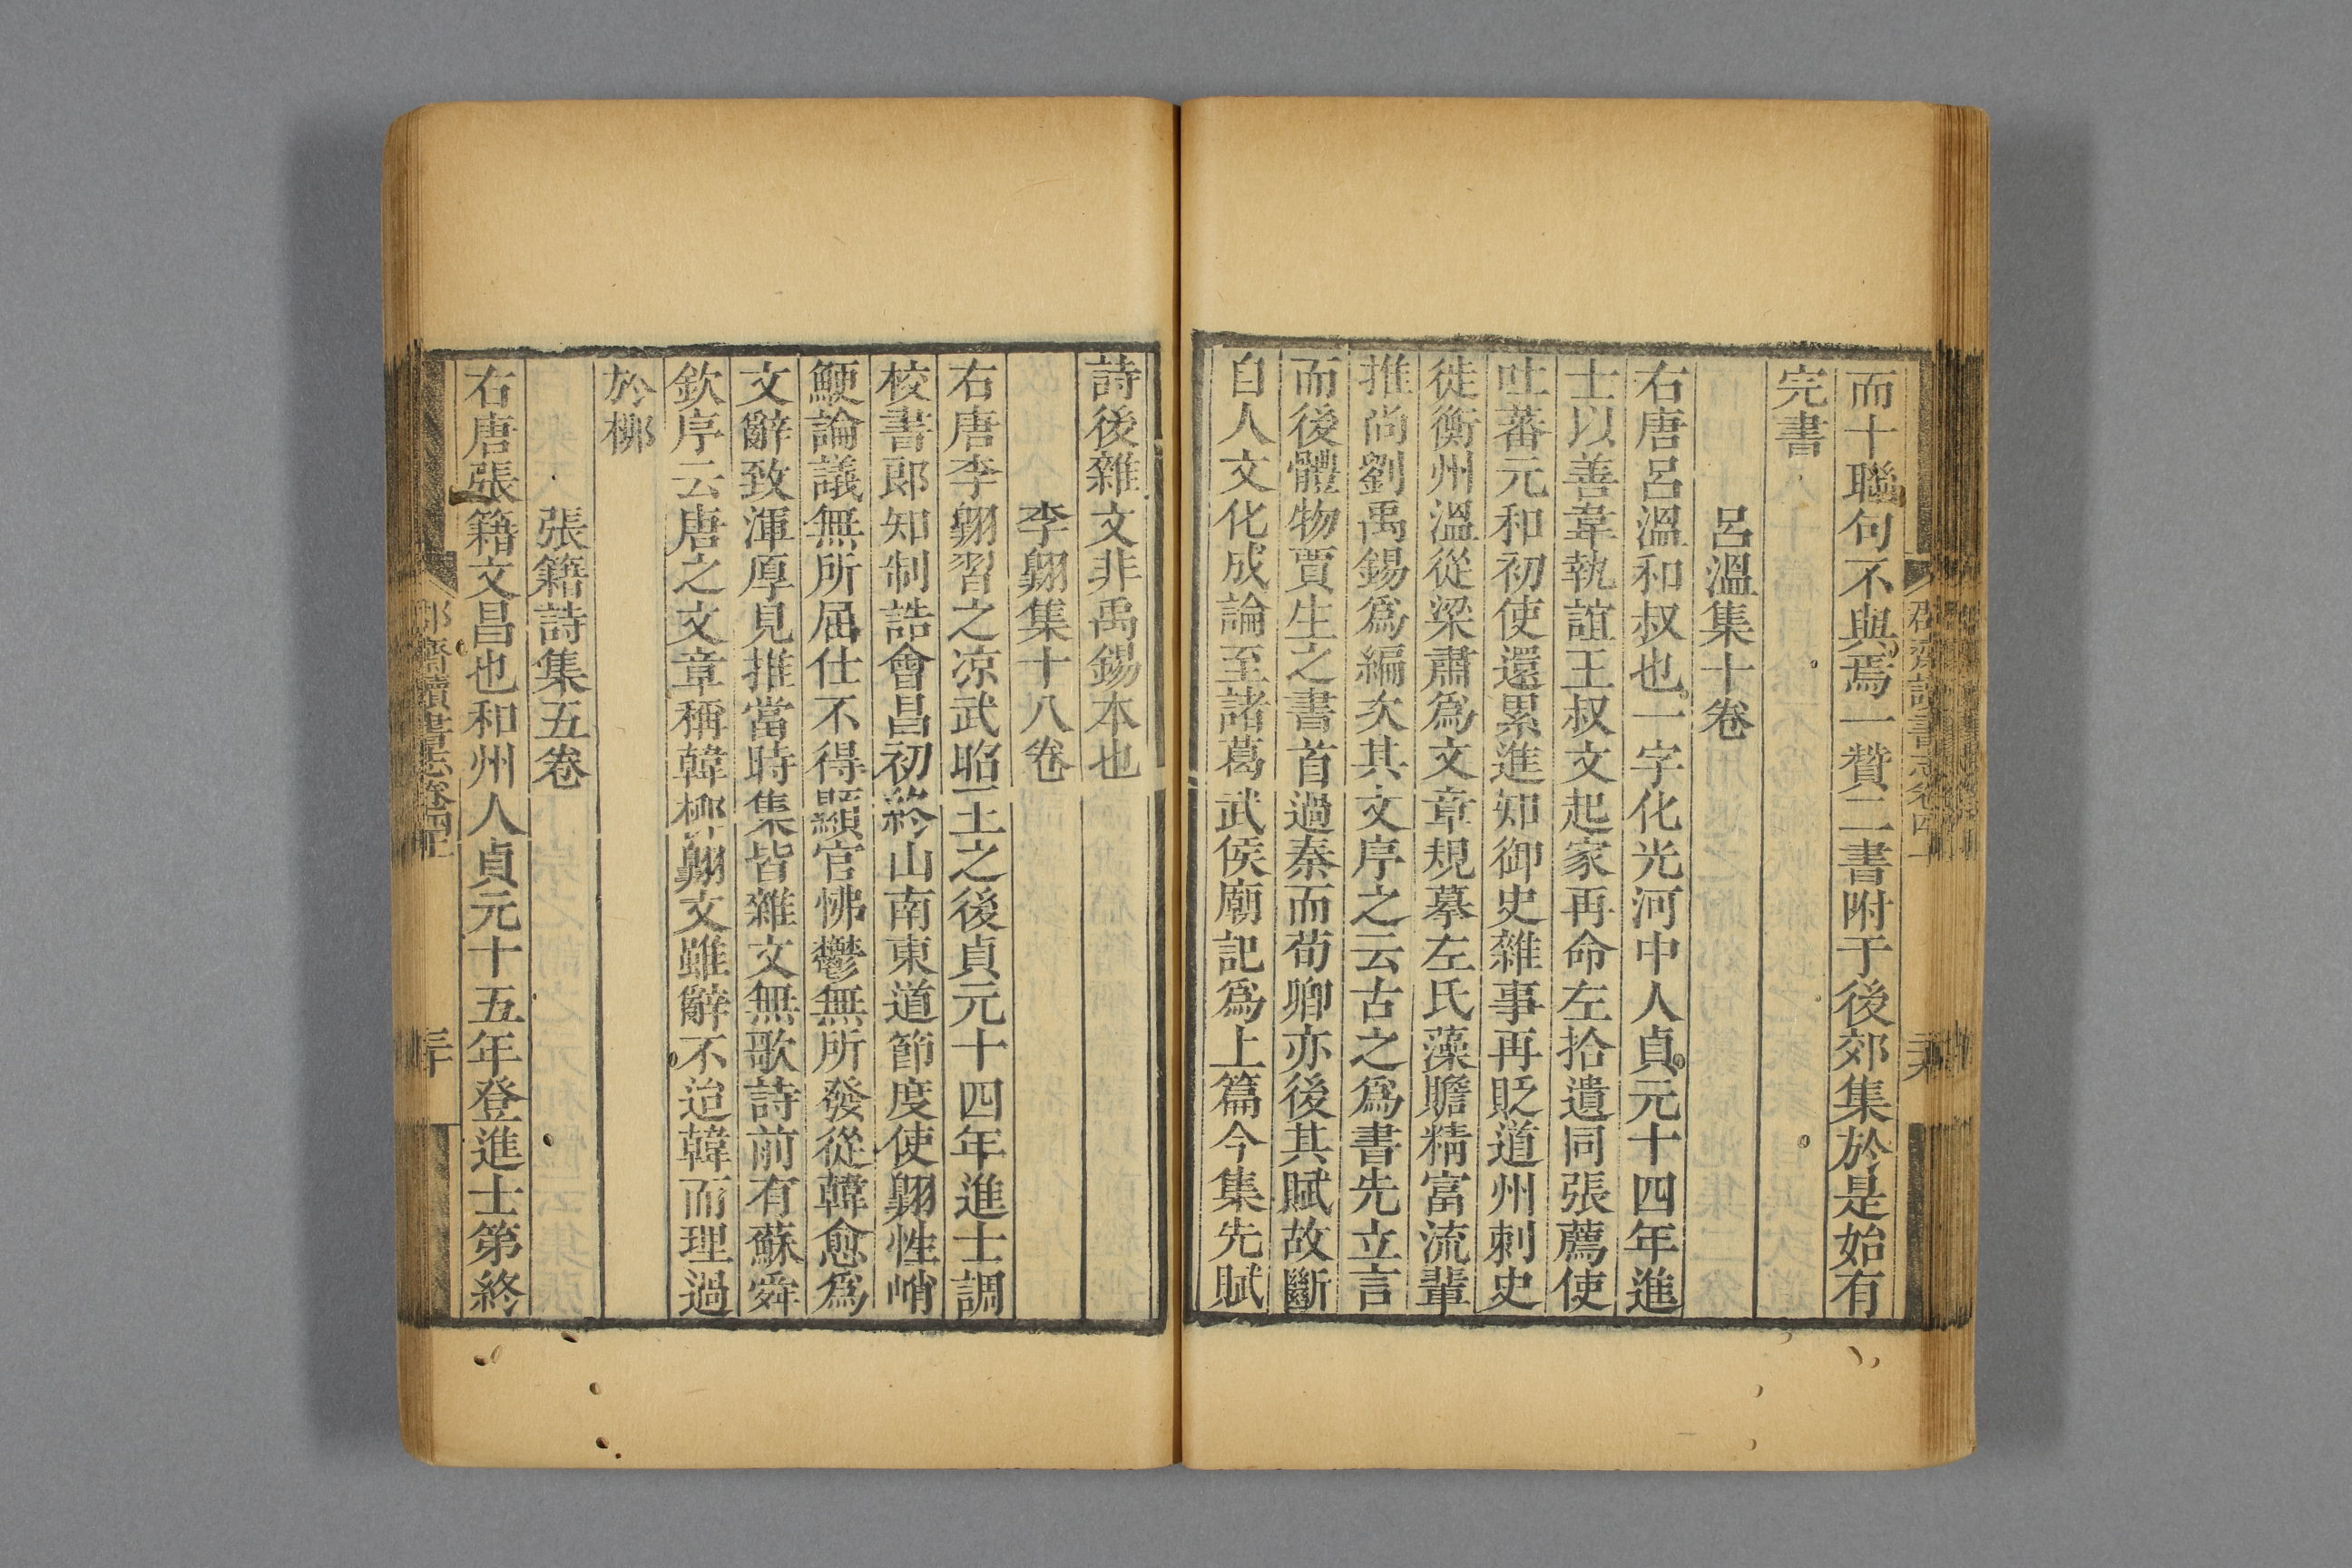 而十聯句不與焉一贊二書附于後郊集於是始有
完書
呂溫集十卷
右唐呂溫和叔也一字化光河中人貞元十四年進
士以善韋執誼王叔文起家再命左拾遺同張薦使
吐蕃元和初使還累進知御史雜事再貶道州刺史
徙衡州溫從梁肅為文章規摹左氏藻贍精富流輩
推尚劉禹錫為編次其文序之云古之為書先立言
而後體物賈生之書首過秦而荀卿亦後其賦故斷
自人文化成論至諸葛武侯廟記為上篇今集先賦
詩後雜文非禹錫本也
李翶集十八卷
右唐李翶習之凉武昭王之後貞元十四年進士調
校書郎知制誥會昌初終山南東道節度使翶性峭
鯁論議無所屈仕不得顯官怫鬱無所發從韓愈為
文辭致渾厚見推當時集皆雜文無歌詩前有蘇舜
欽序云唐之文章稱韓柳翶文雖辭不迨韓而理過
於柳
張籍詩集五卷
右唐張籍文昌也和州人貞元十五年登進士第終
郡齋讀書志卷四上
三十